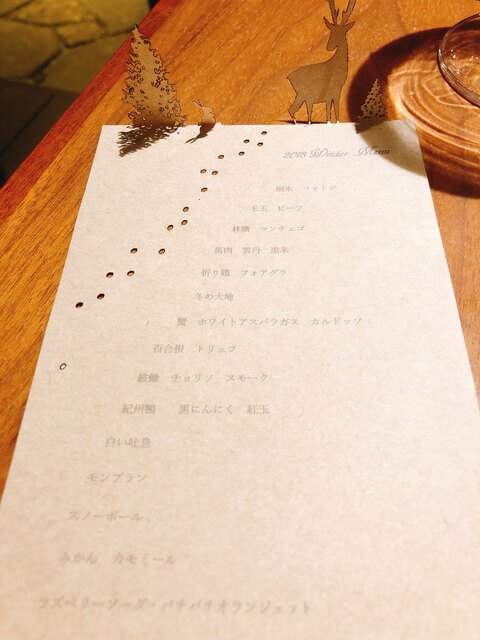 2018 Winter Menu
樹氷 コットン
毛玉 ビーツ
林檎 マンチェゴ
馬肉 雲丹 黒米
折り鶴 フォアグラ
冬の大地
蟹 ホワイトアスパラガス カルドッソ
百合根 トリュフ
鮟鱇 チョリソ スモーク
紀州鴨 黒にんにく 紅玉
白い吐息
モンブラン
スノーボール
みかん カモミール
ラズベリーソーダ・パチパチオランジェット